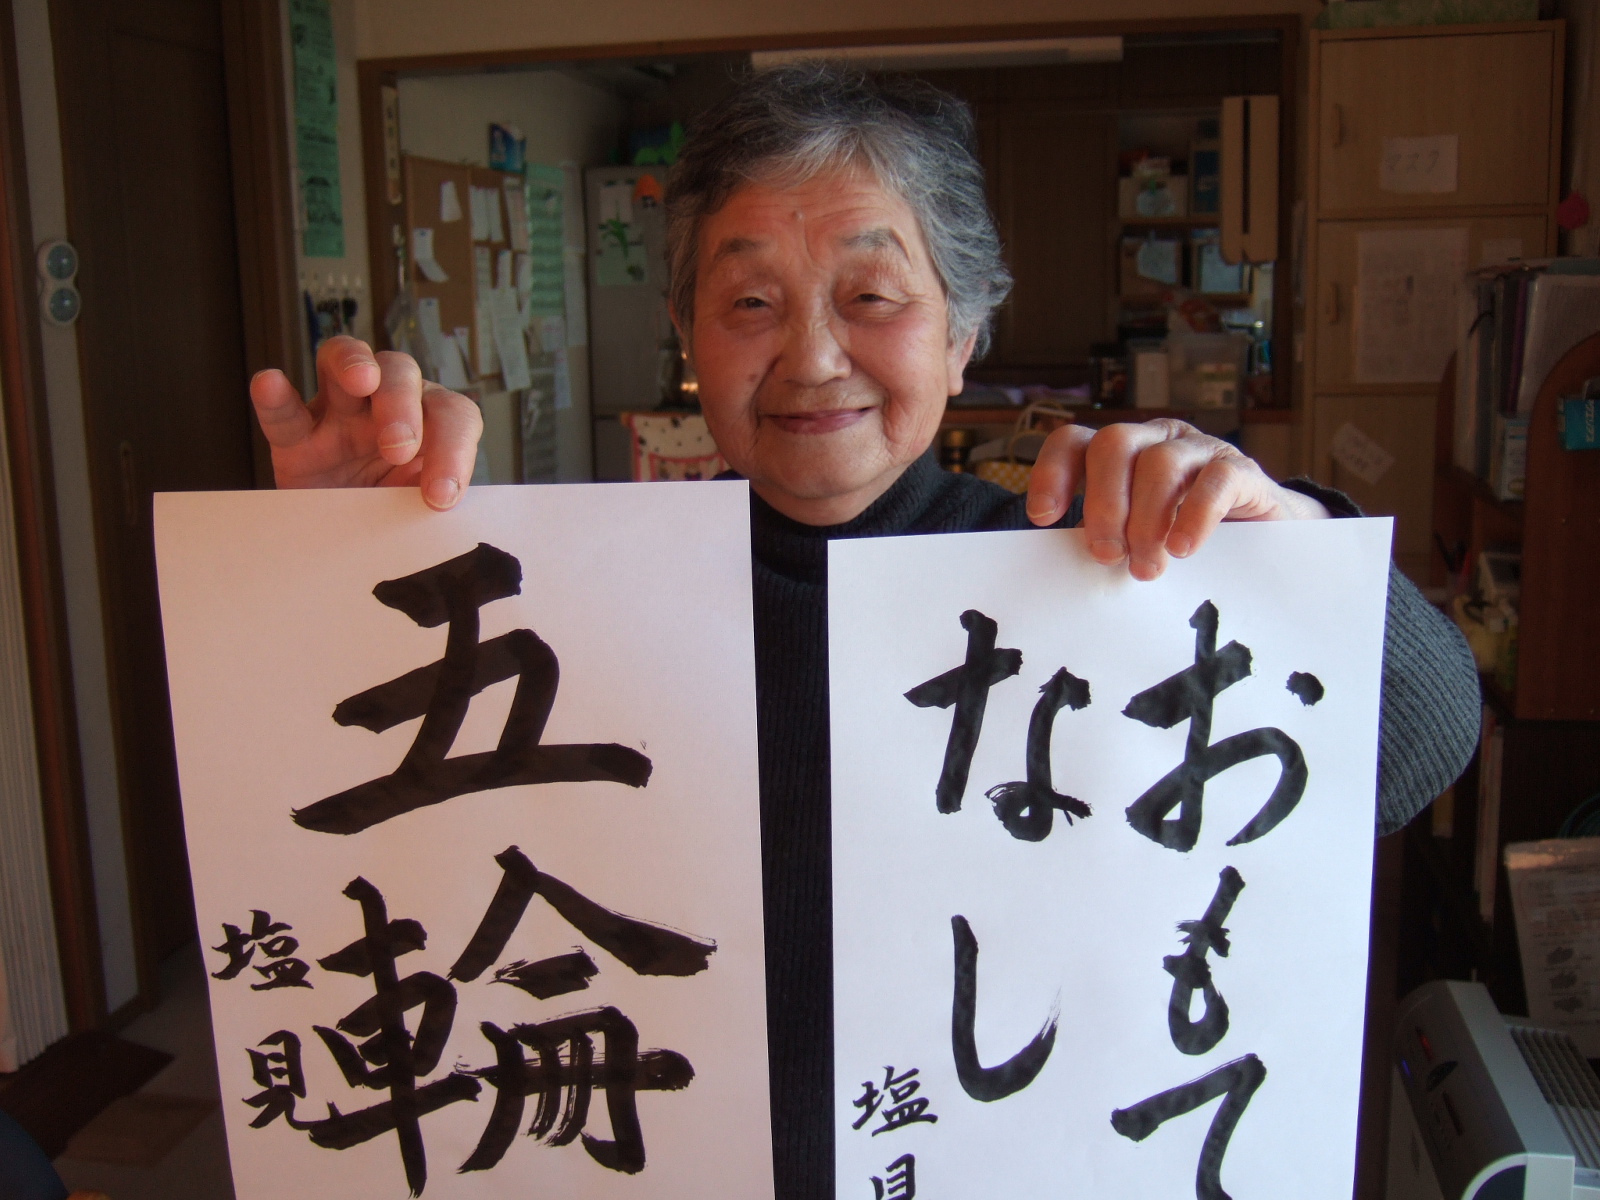 五輪
塩見
おもて
なし
塩見